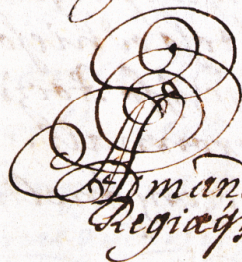 Ad man
Regiæq;